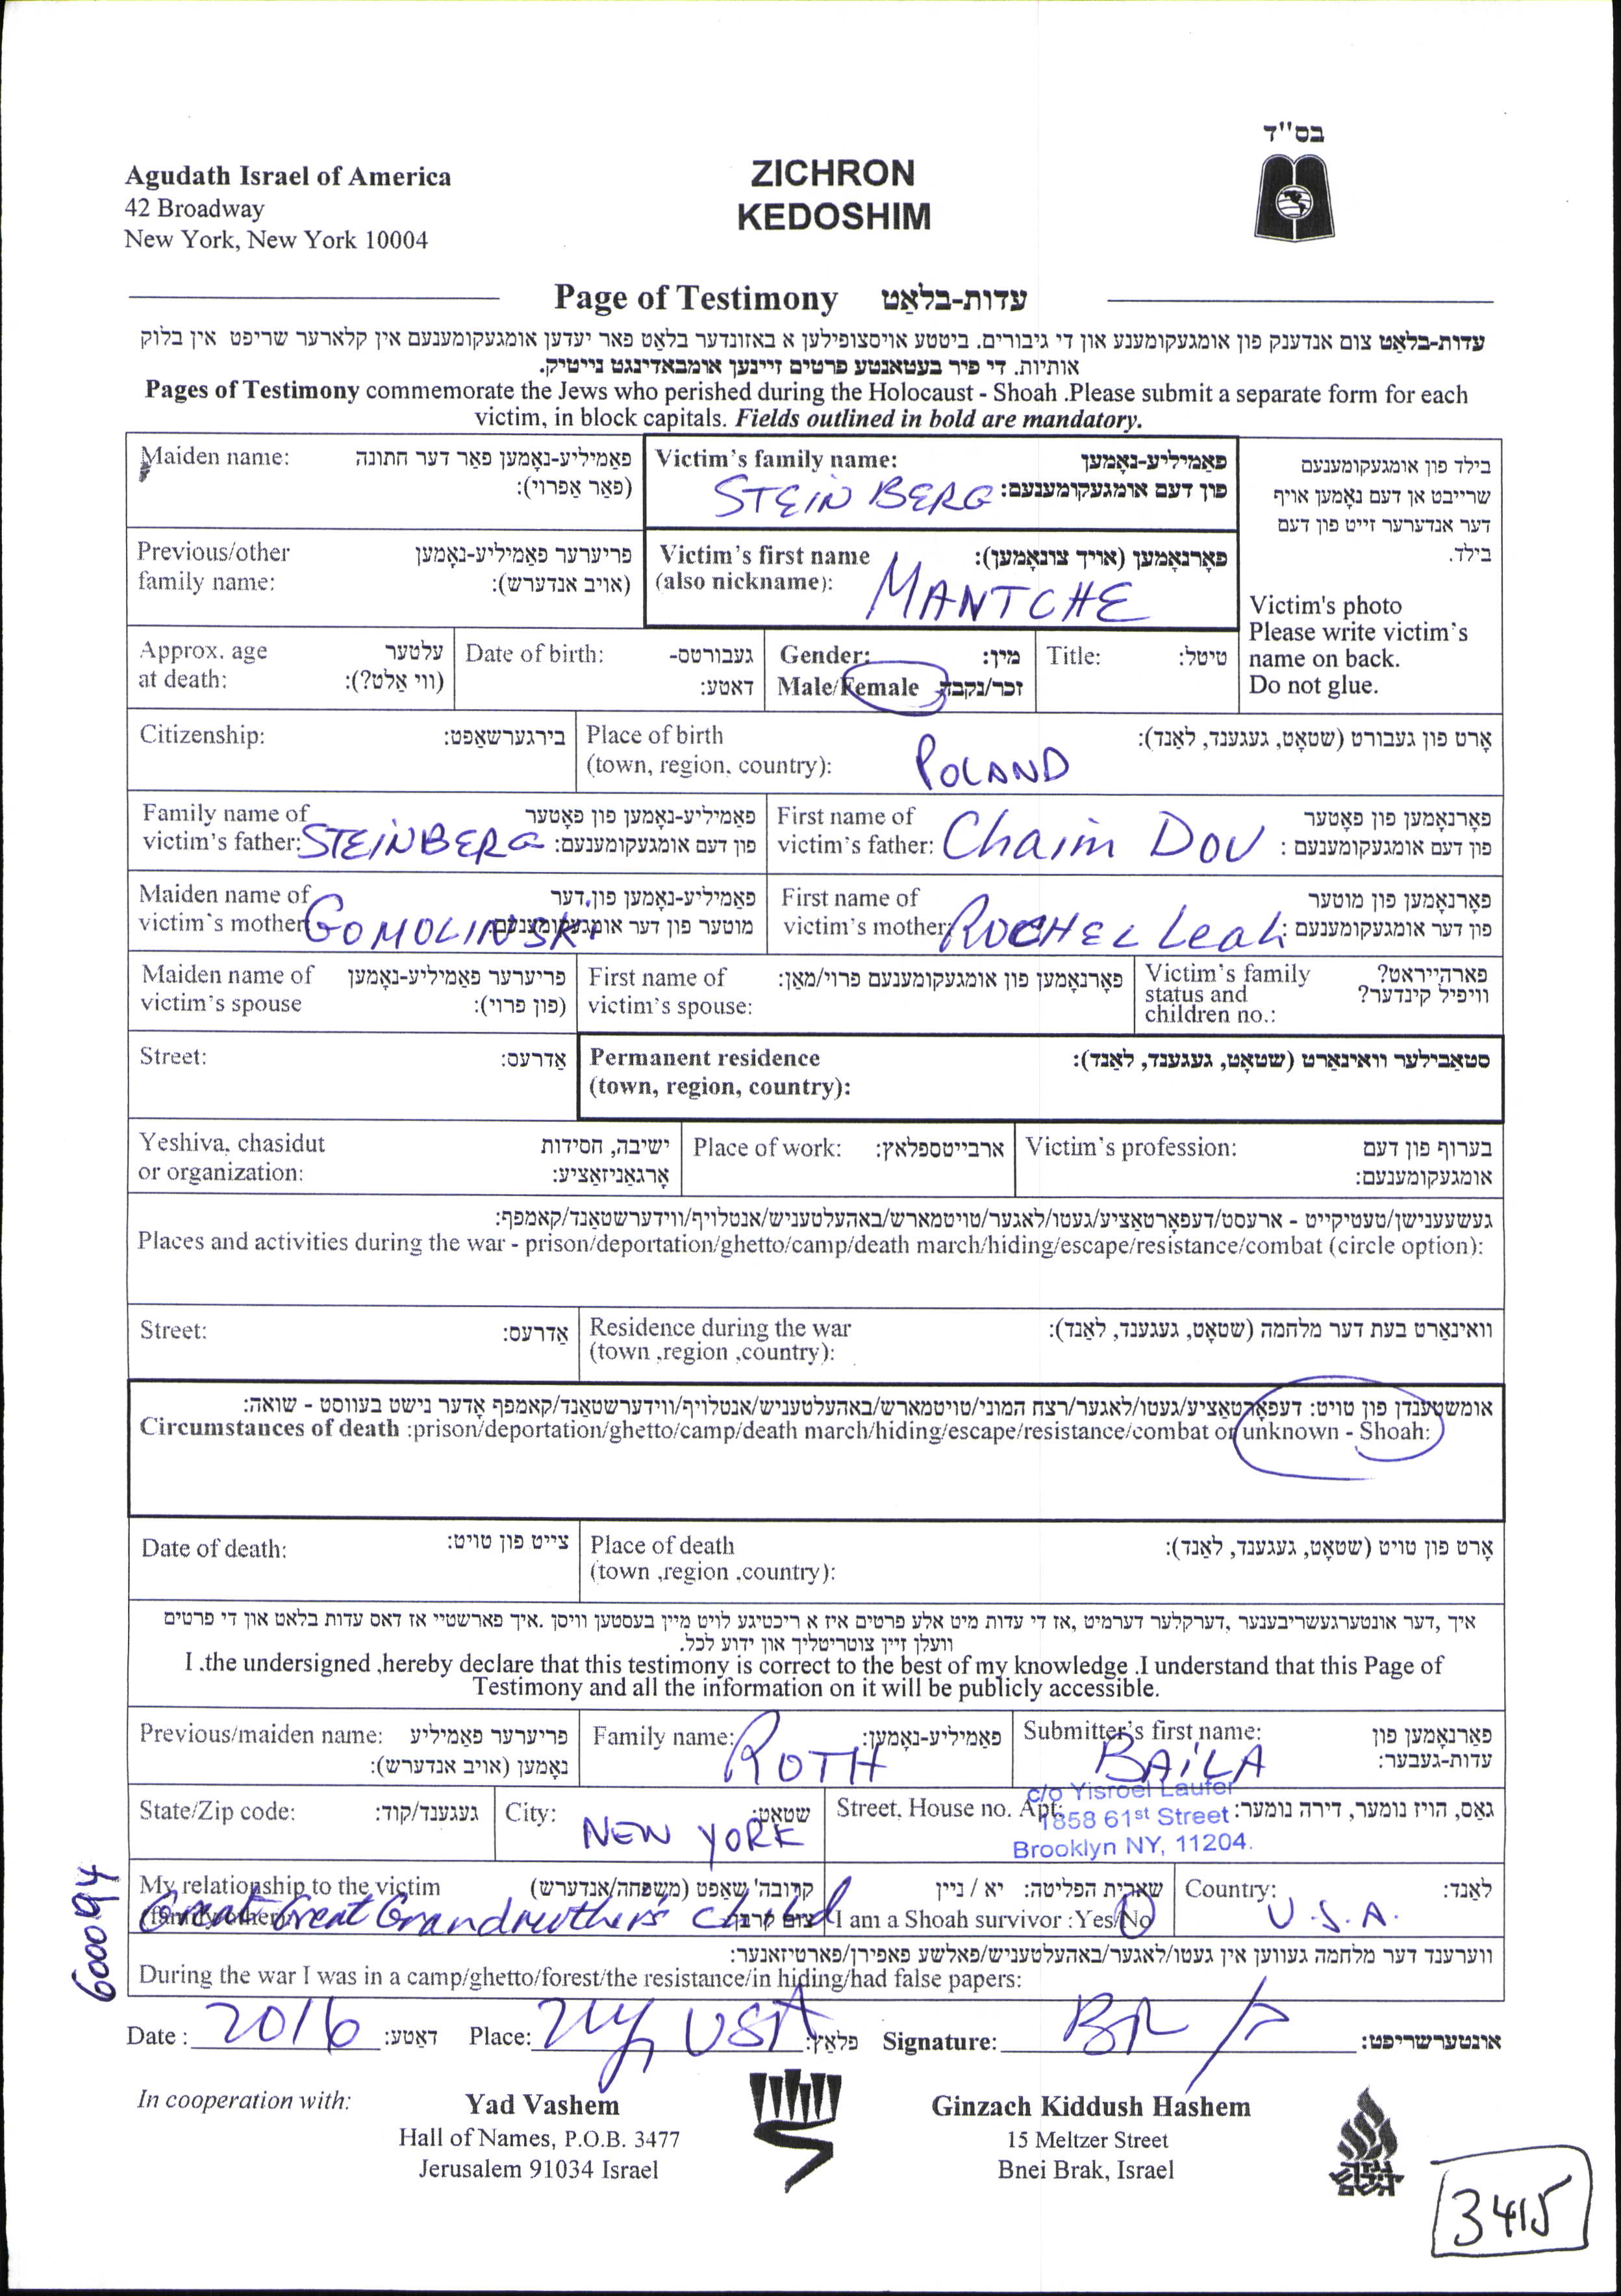 בס"ד
Agudath Israel of America
42 Broadway
New York, New York 10004
ZICHRON
KEDOSHIM
Page of Testimony עדות-בלאַט
עדות-בלאַט צום אנדענק פון אומגעקומענע און די גיבורים. ביטטע אויסצופילען א באזונדער בלאט פאר יעדען אומגעקומענעם אין קלארער שריפט אין בלוק
אותיות. די פיר בעטאנטע פרטים זיינען אומבאדינגט נייטיק.
Pages of Testimony commemorate the Jews who perished during the Holocaust - Shoah .Please submit a separate form for each
victim, in block capitals. Fields outlined in bold are mandatory.
Maiden name: פאַמיליע-נאָמען פאר דער חתונה
(פאר אפרוי):
Victim's family name: פאַמיליע-נאָמען
פון דעם אומגעקומענעם: STEINBERG
בילד פון אומגעקומענעם
שרייבט אן דעם נאָמען אויף
דער אנדערער זייט פון דעם
בילד.
Victim's photo
Please write victim's
name on back.
Do not glue.
Previous/other פריערער פאַמיליע-נאָמען
family name: (אויב אנדערש):
Victim's first name פאָרנאָמען (אויך צונאָמען):
(also nickname): MANTCHE
Approx. age עלטער
at death: (ווי אַלט?):
Date of birth: געבורטס-
דאטע:
Gender: מין:
Male/Female זכר/נקבה
Title: טיטל:
Citizenship: בירגערשאַפט:
Place of birth אָרט פון געבורט (שטאָט, געגענד, לאַנד):
(town, region, country): POLAND
Family name of פאַמיליע-נאָמען פון פאָטער
victim's father: STEINBERG פון דעם אומגעקומענעם:
First name of פאָרנאָמען פון פאָטער
victim's father: Chaim Dov פון דעם אומגעקומענעם :
Maiden name of פאַמיליע-נאָמען פון דער
victim's mother GOMOLINSKI מוטער פון דער אומגעקומענעם:
First name of פאָרנאָמען פון מוטער
victim's mother: ROCHEL Leah פון דער אומגעקומענעם:
Maiden name of פריערער פאַמיליע-נאָמען
victim's spouse (פון פרוי):
First name of פאָרנאָמען פון אומגעקומענעם פרוי/מאַן:
victim's spouse:
Victim's family פארהייראט?
status and וויפיל קינדער?
children no.:
Street: אַדרעס:
Permanent residence סטאַבילער וואוינאָרט (שטאָט, געגענד, לאַנד):
(town, region, country):
Yeshiva, chasidut ישיבה, חסידות
or organization: אָרגאַניזאַציע:
Place of work: ארבייטספלאץ:
Victim's profession: בערוף פון דעם
אומגעקומענעם:
געשעענישן/טעטיקייט - ארעסט/דעפאָרטאַציע/געטו/לאגער/טויטמארש/באהעלטעניש/אנטלויף/ווידערשטאַנד/קאמפף:
Places and activities during the war - prison/deportation/ghetto/camp/death march/hiding/escape/resistance/combat (circle option):
Street: אַדרעס:
Residence during the war וואוינאָרט בעת דער מלחמה (שטאָט, געגענד, לאַנד):
(town ,region ,country):
אומשטענדן פון טויט: דעפאָרטאַציע/געטו/לאגער/רצח המוני/טויטמארש/באהעלטעניש/אנטלויף/ווידערשטאַנד/קאמפף אָדער נישט בעווסט - שואה:
Circumstances of death :prison/deportation/ghetto/camp/death march/hiding/escape/resistance/combat or unknown - Shoah:
Date of death: צייט פון טויט:
Place of death אָרט פון טויט (שטאָט, געגענד, לאַנד):
(town ,region ,country):
איך ,דער אונטערגעשריבענער ,דערקלער דערמיט ,אז די עדות מיט אלע פרטים איז א ריכטיגע לויט מיין בעסטען וויסן .איך פארשטיי אז דאס עדות בלאט און די פרטים
וועלן זיין צוטריטליך און ידוע לכל.
I .the undersigned ,hereby declare that this testimony is correct to the best of my knowledge .I understand that this Page of
Testimony and all the information on it will be publicly accessible.
Previous/maiden name: פריערער פאַמיליע
נאָמען (אויב אנדערש):
Family name: ROTH פאַמיליע-נאָמען:
Submitter's first name: פאָרנאָמען פון
BAILA עדות-געבער:
State/Zip code: געגענד/קוד:
City: שטאָט:
NEW YORK
Street, House no. Apt: גאַס, הויז נומער, דירה נומער:
c/o Yisroel Laufer
1858 61st Street
Brooklyn NY, 11204.
My relationship to the victim קרובה'שאַפט (משפּחה/אנדערש)
(family/other): Great Great Grandmother's child
שארית הפליטה: יא / ניין
I am a Shoah survivor :Yes/No
Country: לאַנד:
U.S.A.
ווערענד דער מלחמה געווען אין געטו/לאגער/באהעלטעניש/פאלשע פאפירן/פארטיזאנער:
During the war I was in a camp/ghetto/forest/the resistance/in hiding/had false papers:
600094
Date : 2016 דאַטע: Place: NY USA פלאַץ: Signature: אונטערשריפט:
In cooperation with:
Yad Vashem
Hall of Names, P.O.B. 3477
Jerusalem 91034 Israel
Ginzach Kiddush Hashem
15 Meltzer Street
Bnei Brak, Israel
3415